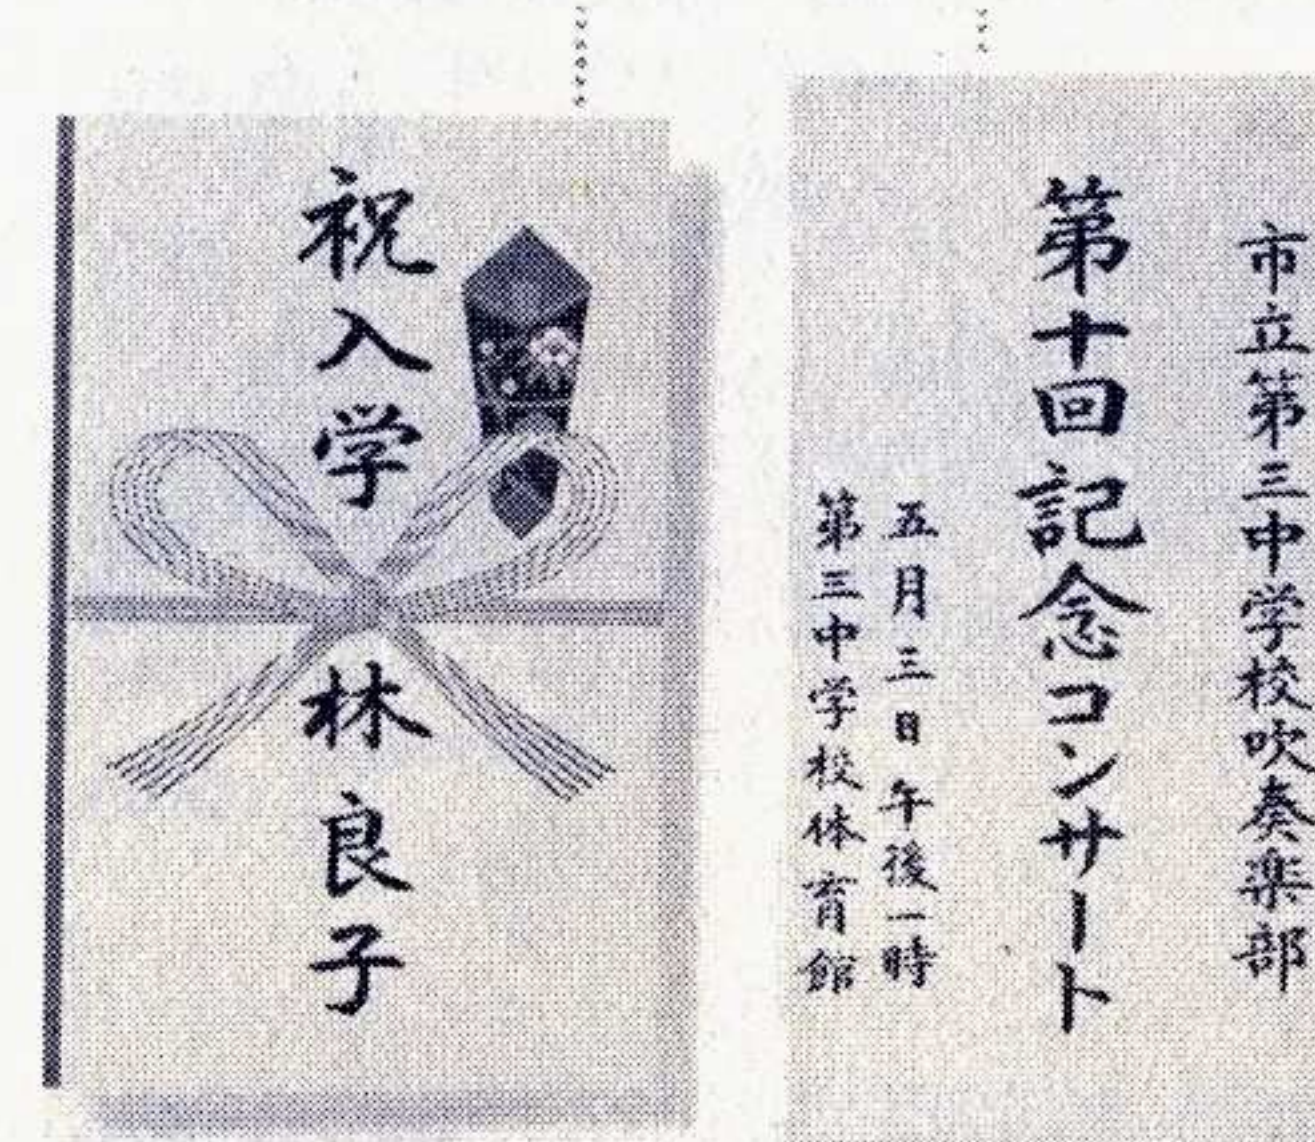 市立第三中学校吹奏楽部
第十回記念コンサート
五月三日 午後一時
第三中学校体育館
祝入学
林良子